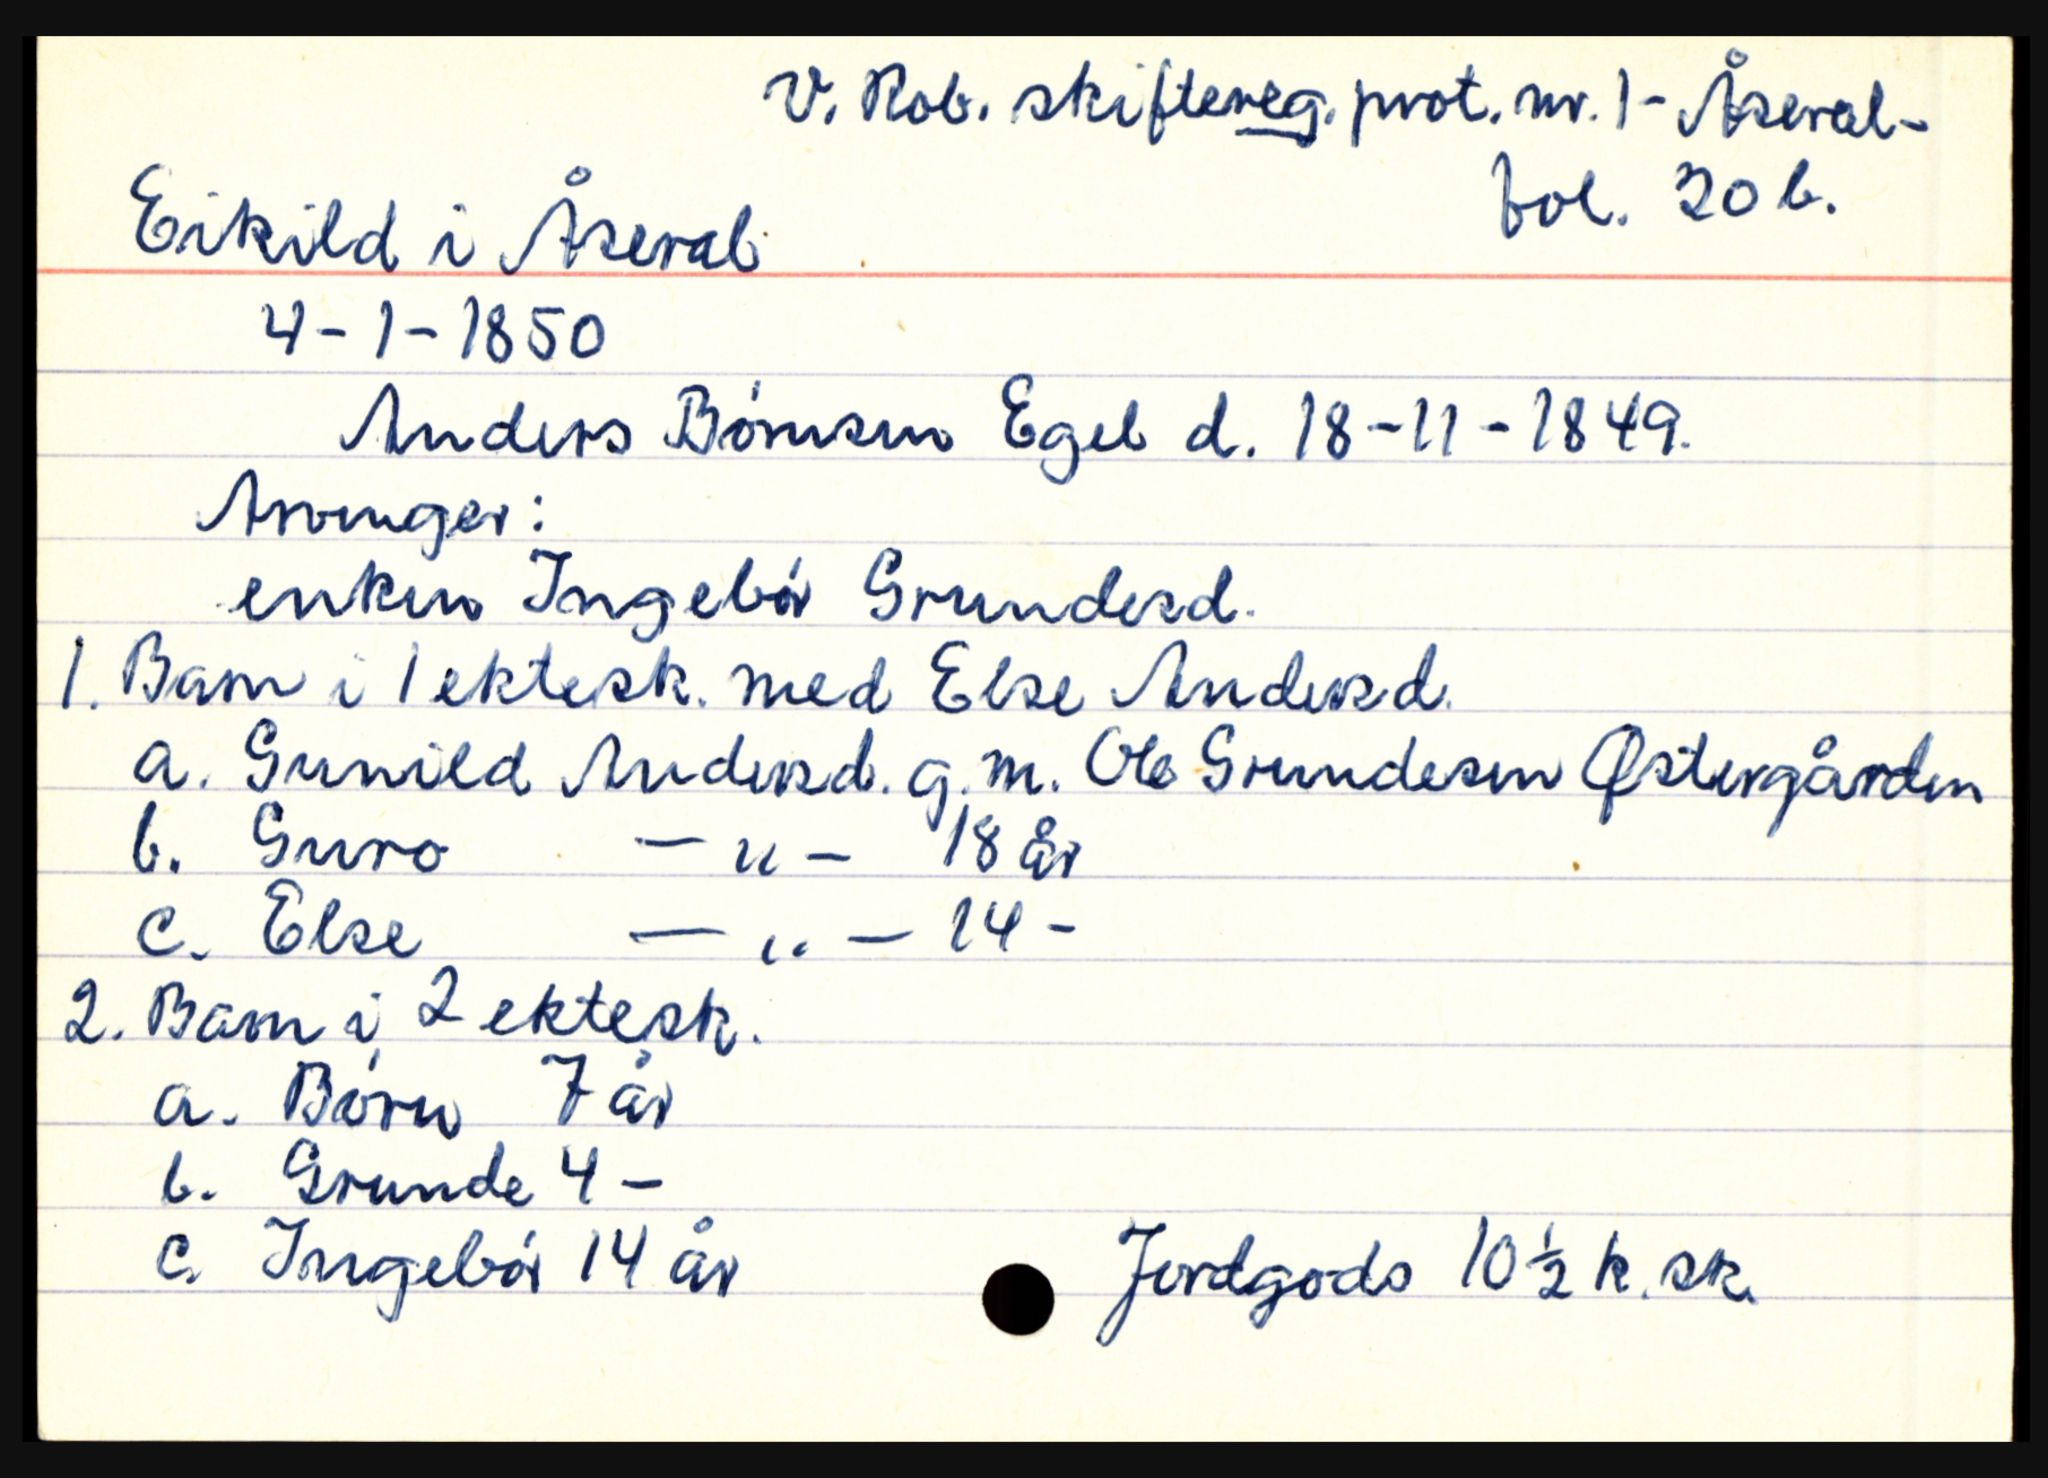 V. Rob. skiftereg. prot. nr. 1 - Åseral -
fol. 20 b.
Eikild i Åseral
4 - 1 - 1850
Anders Børnsen Egel d. 18 - 11 - 1849.
Arvinger:
enken Ingebór Grundesd.
1. Barn i 1 ektesk. med Else Andersd.
a. Gunild Andersd. g. m. Ole Grundesen Østergården
b. Guro — " — 18 år
c. Else — " — 14 -
2. Barn i 2 ektesk.
a. Børn 7 år
b. Grunde 4 -
c. Ingebór 14 år Jordgods 10 ½ k. sk.